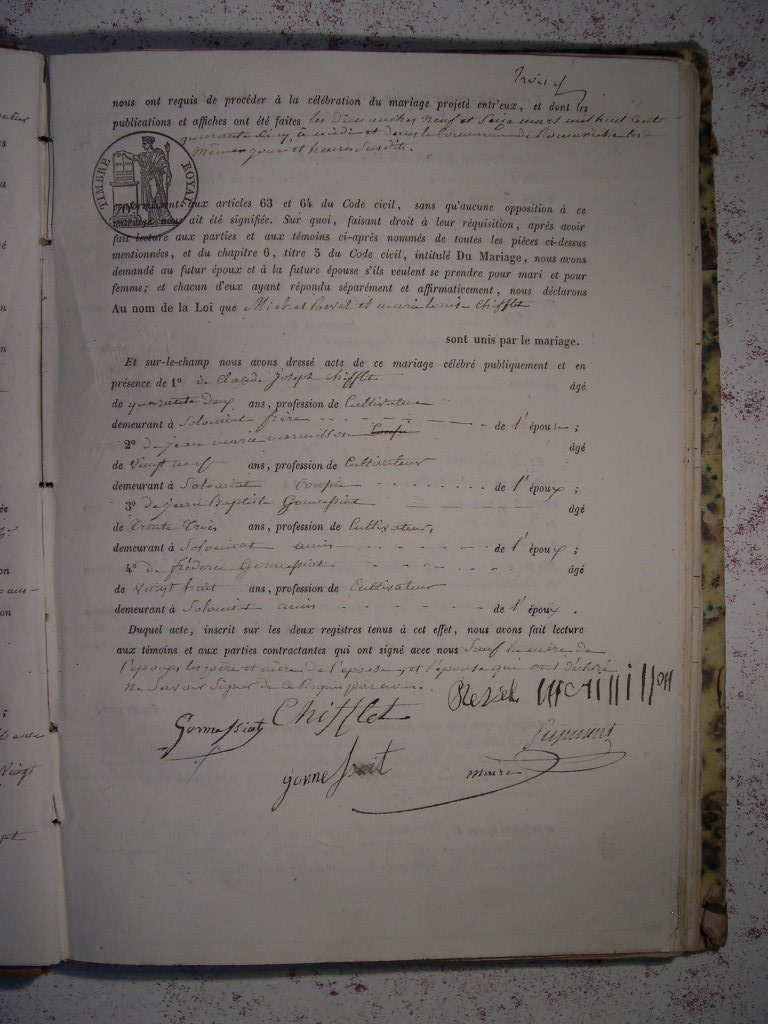 trois
nous ont requis de procéder à la célébration du mariage projeté entr'eux, et dont les
publications et affiches ont été faites les Dimanches neuf et Seize mars mil huit cent
quarante cinq, à midi et dans la Commune de Romanèche les
mêmes jour et heures susdits.
TIMBRE ROYAL
conformément aux articles 63 et 64 du Code civil, sans qu'aucune opposition à ce
mariage nous ait été signifiée. Sur quoi, faisant droit à leur réquisition, après avoir
fait lecture aux parties et aux témoins ci-après nommés de toutes les pièces ci-dessus
mentionnées, et du chapitre 6, titre 5 du Code civil, intitulé Du Mariage, nous avons
demandé au futur époux et à la future épouse s'ils veulent se prendre pour mari et pour
femme; et chacun d'eux ayant répondu séparément et affirmativement, nous déclarons
Au nom de la Loi que Michel Revel et marie louise Chifflet
sont unis par le mariage.
Et sur-le-champ nous avons dressé acte de ce mariage célébré publiquement et en
présence de 1° de Claude Joseph Chifflet âgé
de quarante deux ans, profession de Cultivateur
demeurant à frère de l'épouse;
2° de jean marie mermillon âgé
de vingt neuf ans, profession de Cultivateur
demeurant à Cousin de l'époux;
3° de jean Baptiste Gonnessiat âgé
de trente trois ans, profession de Cultivateur,
demeurant à amis de l'époux;
4° de frédéric Gonnessiat âgé
de vingt huit ans, profession de Cultivateur
demeurant à amis de l'époux.
Duquel acte, inscrit sur les deux registres tenus à cet effet, nous avons fait lecture
aux témoins et aux parties contractantes qui ont signé avec nous Sauf la mère de
l'époux, les père et mère de l'épouse, et l'épouse qui ont déclaré
ne Savoir Signer de ce Requis par nous.
Revel mermillon
Gonnessiat Chifflet
gonnessiat maire